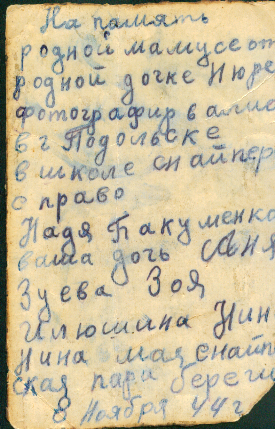 На память
родной мамусе от
родной дочке Нюре
фотографир в
в г Подольске
в школе снайпер
с право
Надя Бакуменко
ваша дочь Аня
Зуева Зоя
Илюшина Нин
Нина мая снайп
ская пара береги
8 Ноября 44 г